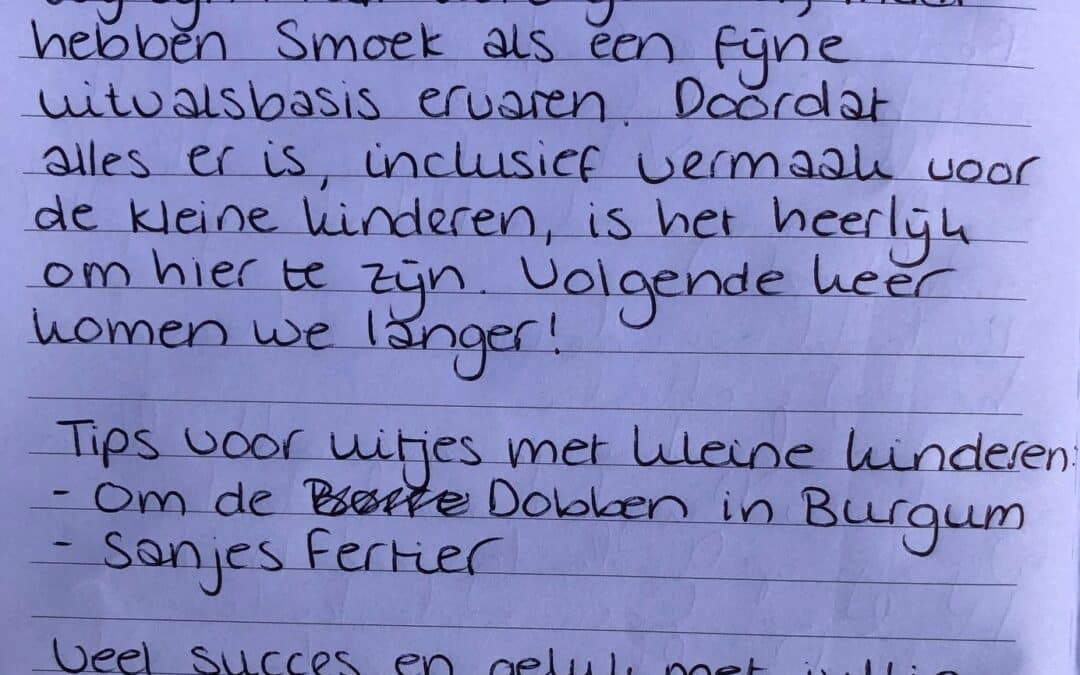 hebben Smoek als een fijne
uitvalsbasis ervaren. Doordat
alles er is, inclusief vermaak voor
de kleine kinderen, is het heerlijk
om hier te zijn. Volgende keer
komen we langer!
Tips voor uitjes met kleine kinderen:
- Om de Dobben in Burgum
- Sanjes Fertier
Veel succes en geluk met jullie